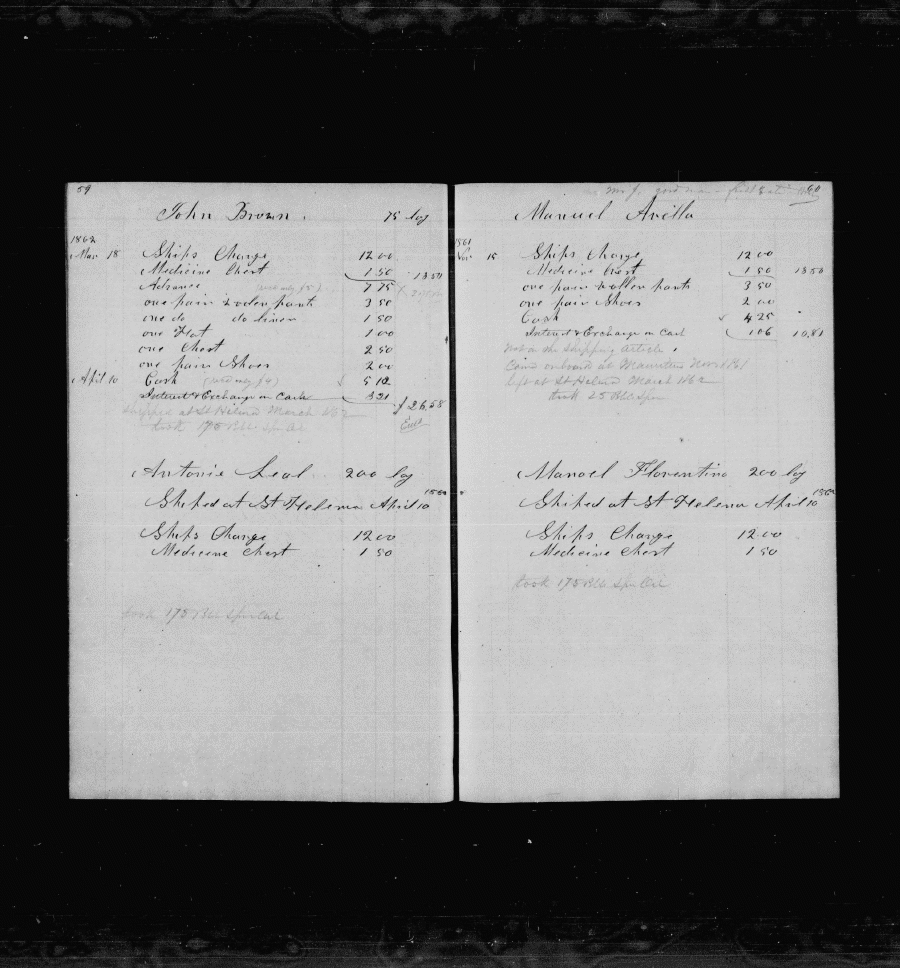 59
John Brown. 75 lay
1862
Mar 18 Ships Charge 12 00
Medicine Chest 1 50 13.50
Advance 7 75
one pair woolen pants 3 50
one do do linen 1 50
one Hat 1 00
one Chest 2 50
one pair Shoes 2 00
April 10 Cash 5 12
Interest & Exchange on Cash 3 21 26,58
shipped at St Helena March 1862
took 175 Bbls Spr Oil
Antonio Leal 200 lay
Shiped at St Helena April 10 1862
Ships Charge 12 00
Medicine Chest 1 50
took 175 Bbls Spr Oil
60
Manuel Avilla
1861
Nov 15 Ships Charge 12 00
Medicine Chest 1 50 13 50
one pair wollen pants 3 50
one pair Shoes 2 00
Cash 4 25
Interest & Exchange on Cash 1 06 10,81
Not on the Shipping Article
Came onboard at Mauritius Nov 1861
left at St Helena March 1862
took 25 Bbls Spr
Manoel Florentino 200 lay
Shiped at St Helena April 10 1862
Ships Charge 12 00
Medicine Chest 1 50
took 175 Bbls Spr Oil